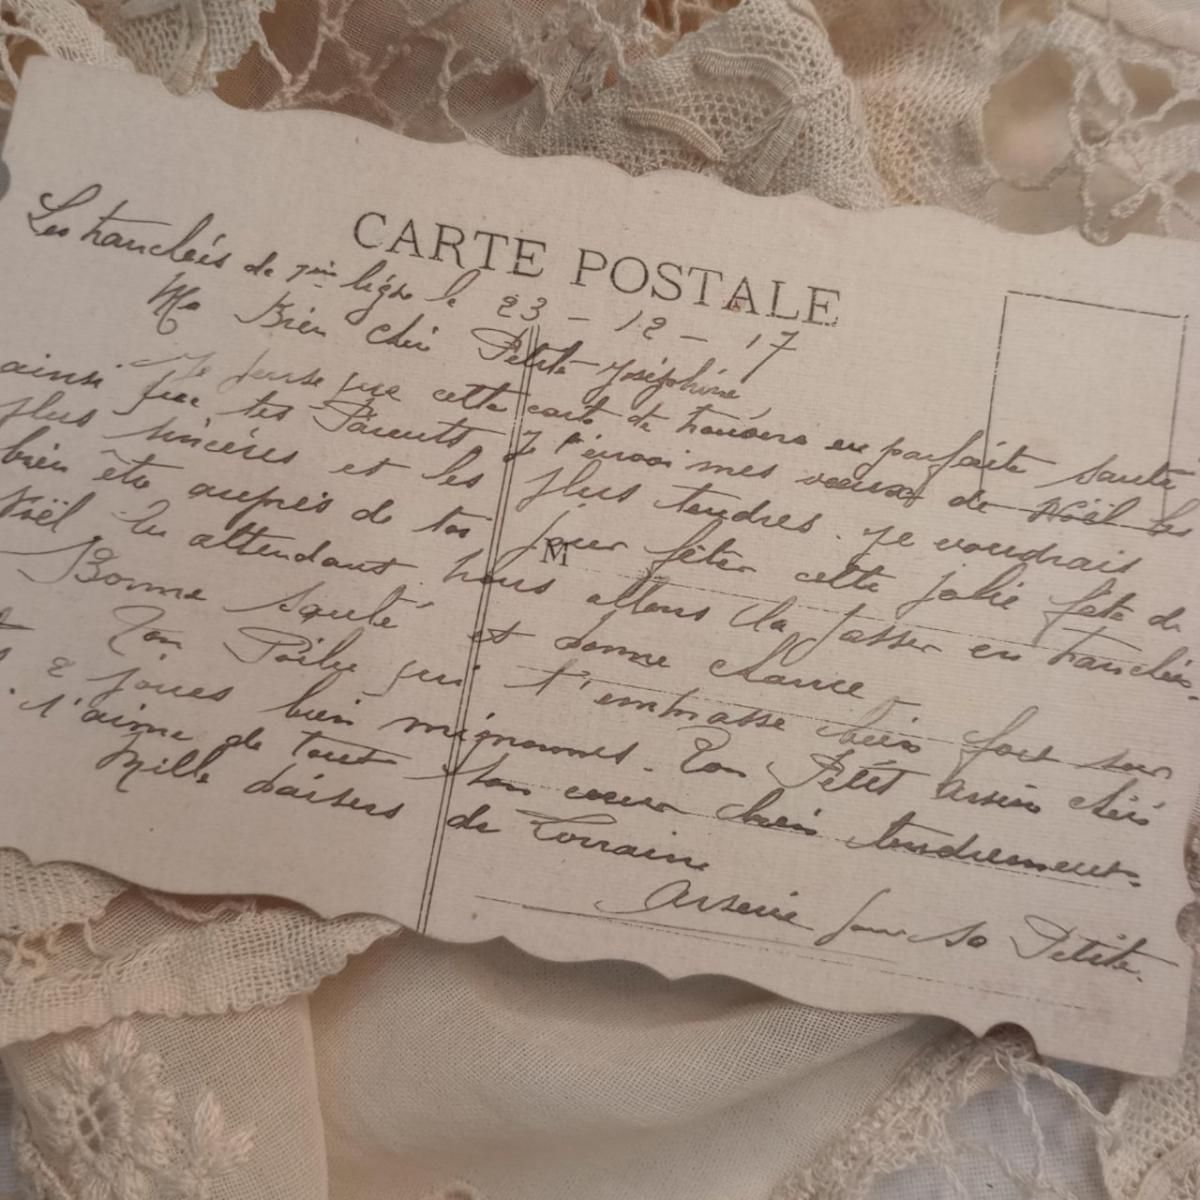 CARTE POSTALE
Les tranchées de 1ère ligne le 23 - 12 - 17
Ma Bien chère Petite Joséphine
Je pense que cette carte te trouvera en parfaite santé
ainsi que tes Parents, Je t'envoi mes voeux de Noël les
plus sincères et les plus tendres. je voudrais
bien être auprès de toi pour fêter cette jolie fête de
Noël En attendant nous allons la passer en tranchées
M
Bonne santé et bonne chance
Ton Poilu qui t'embrasse bien fort sur
2 joues bien mignonnes. Ton Petit Arsène chéri
t'aime de tout son coeur bien tendrement.
Mille baisers de Lorraine
Arsène pour sa Petite.